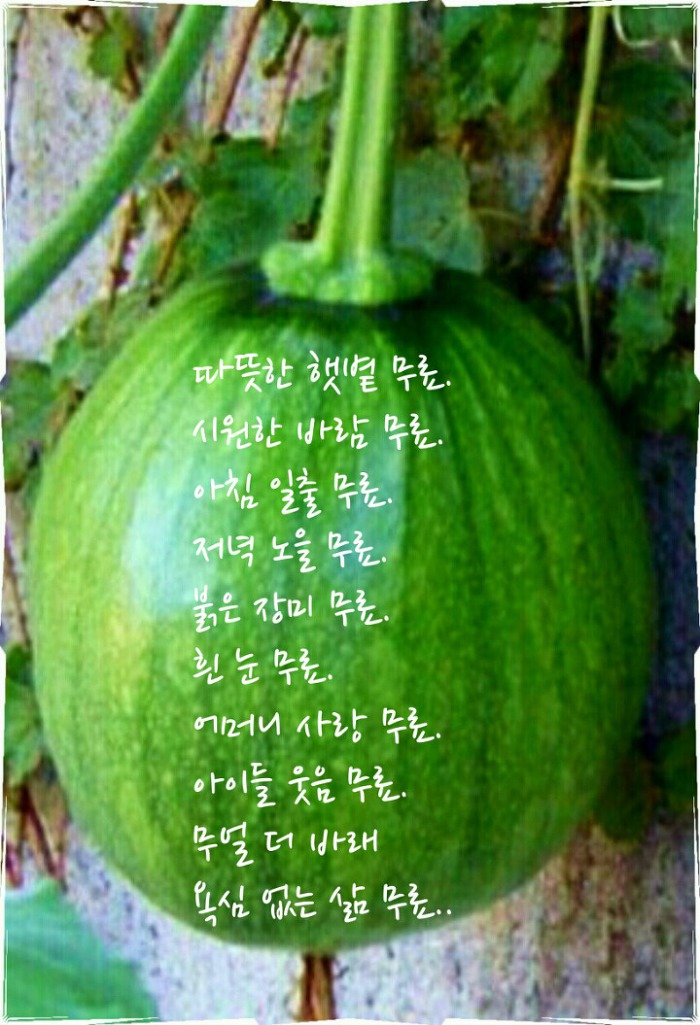 따뜻한 햇볕 무료.
시원한 바람 무료.
아침 일출 무료.
저녁 노을 무료.
붉은 장미 무료.
흰 눈 무료.
어머니 사랑 무료.
아이들 웃음 무료.
무얼 더 바래
욕심 없는 삶 무료..